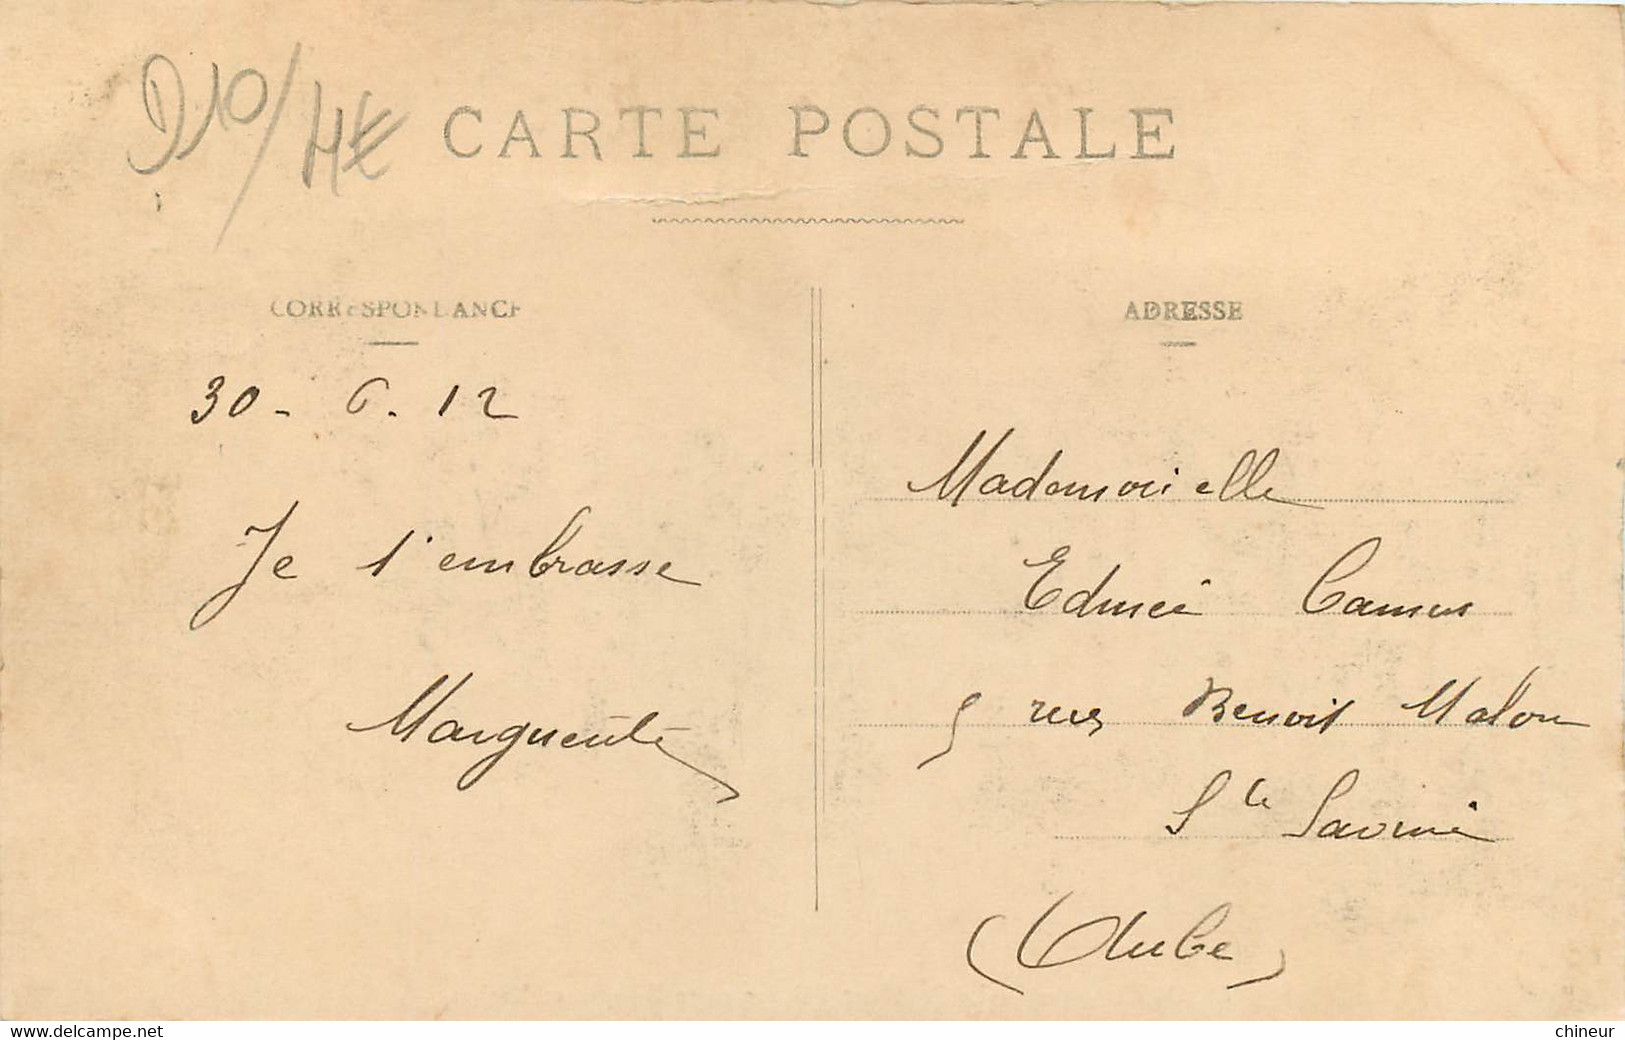 D10/4€
CARTE POSTALE
CORRESPONDANCE
30 - 6. 12
Je t'embrasse
Marguerite
ADRESSE
Mademoiselle
Edmée Camus
5 rue Benoit Malon
Ste Savine
(Aube)
www.delcampe.net
chineur